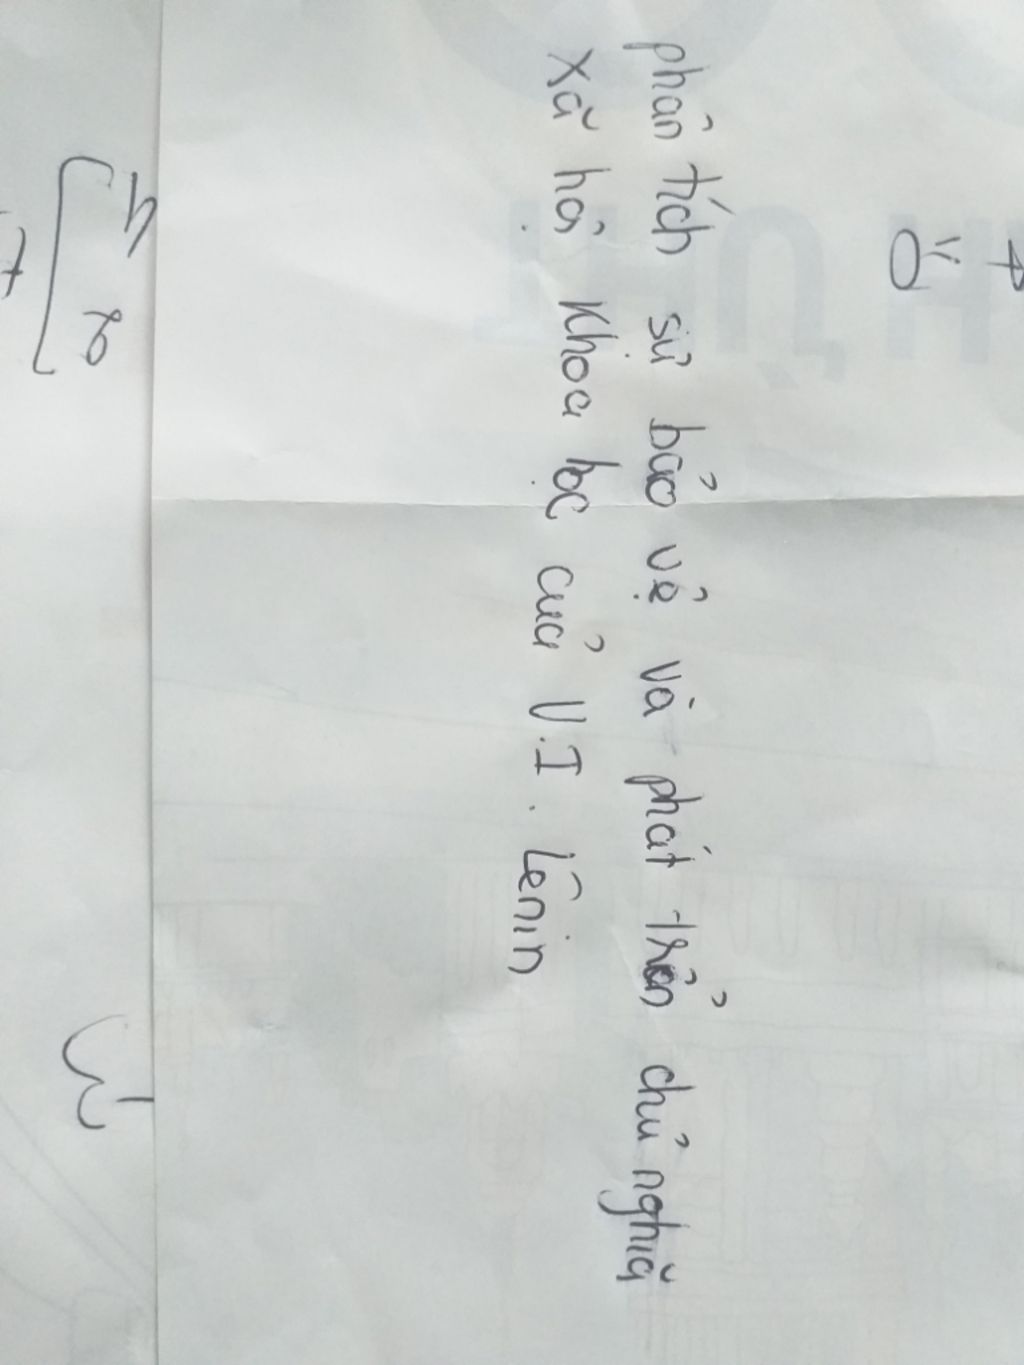 phân tích sự bảo vệ và phát triển chủ nghĩa
xã hội khoa học của V.I. Lênin